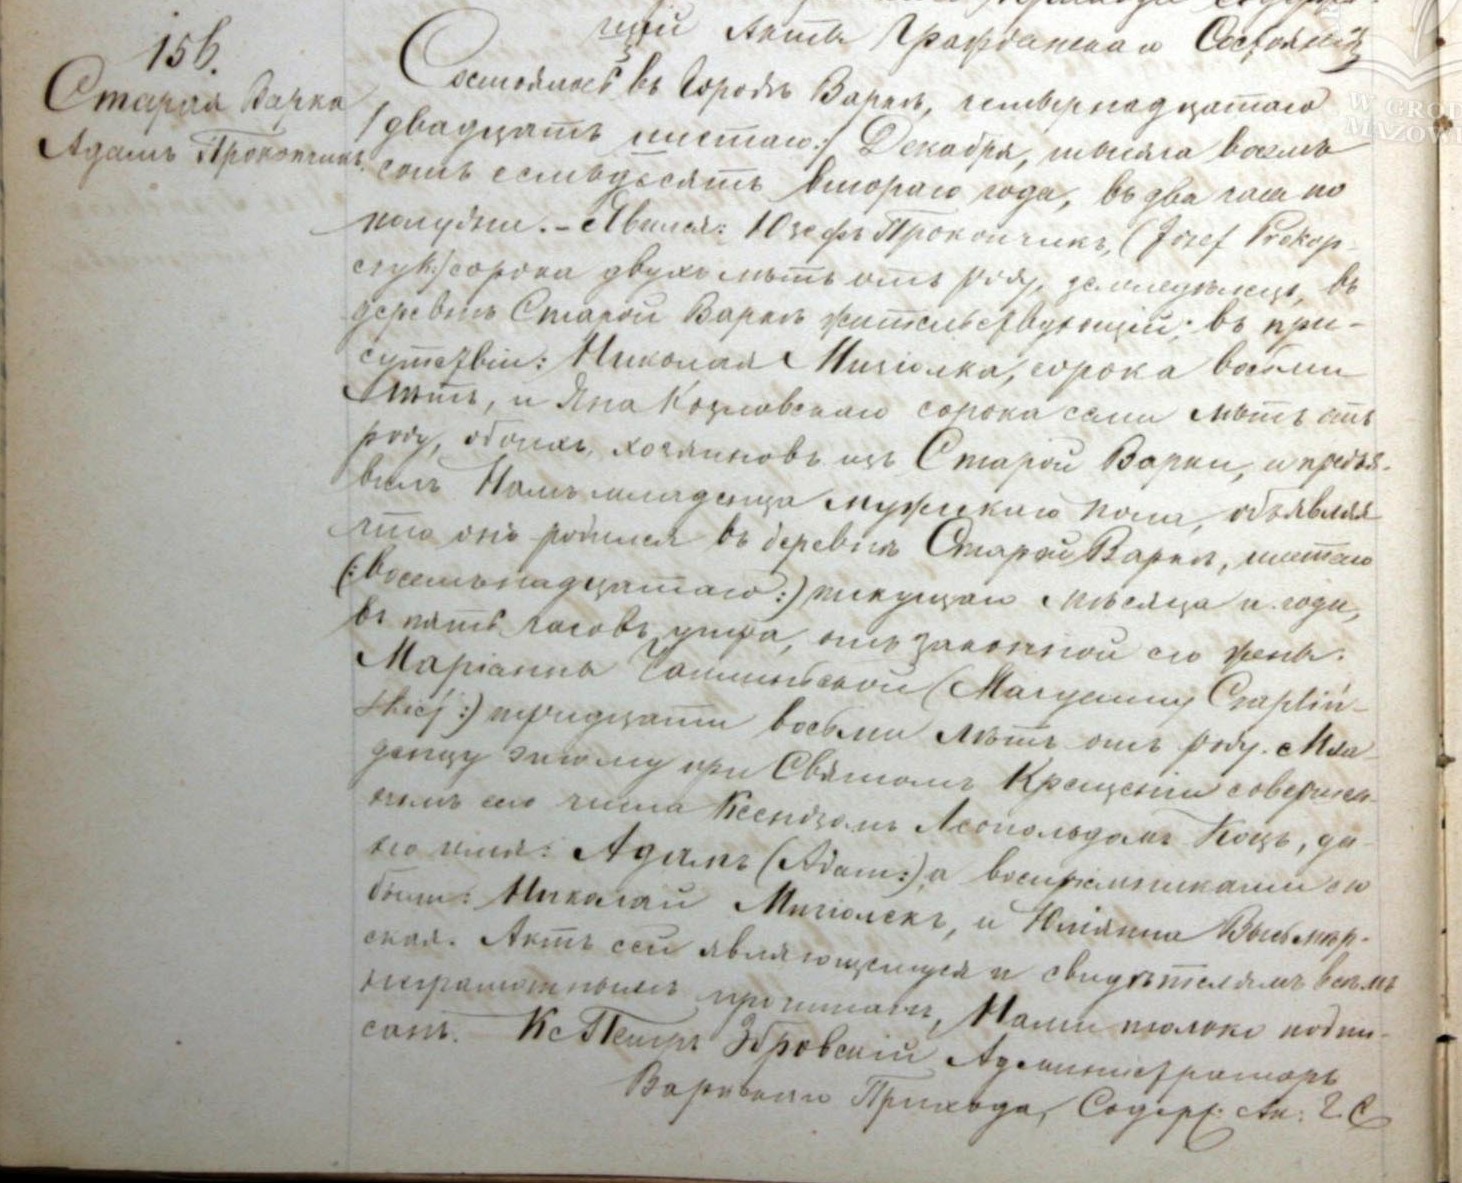 щій Актъ Гражданскаго Состоянія
156.
Старая Варка
Адамъ Прокопчикъ.
Состоялось въ Городѣ Варкѣ, четвернадцатаго
/двадцать шестаго:/ Декабря, тысяча восемь
сотъ семьдесятъ втораго года, въ два часа по
полудни. – Явился: Юзефъ Прокопчикъ, (Józef Prokop-
czyk:) сорока двухъ лѣтъ отъ роду, земледѣлецъ, въ
деревнѣ Старой Варкѣ жительствующій; въ при-
сутствіи: Николая Мизіолка, сорока восьми
лѣтъ, и Яна Козловскаго сорока семи лѣтъ отъ
роду, обоихъ хозяиновъ изъ Старой Варки, и предъя-
вилъ Намъ младенца мужскаго пола, объявляя
что онъ родился въ деревнѣ Старой Варкѣ, шестаго
(:восемьнадцатаго:) текущаго мѣсяца и года,
въ пять часовъ утра, отъ законной его жены
Маріанны Чаплиньской (Maryanny Czapliń-
skiéj:) тридцати восьми лѣтъ отъ роду. Мла-
денцу этому при Святомъ Крещеніи совершен-
номъ сего числа Ксендзомъ Леопольдомъ Коцъ, да-
но имя: Адамъ (Adam:) а воспріемниками его
были: Николай Мизіолекъ, и Юліянна
ская. Актъ сей являющемуся и свидѣтелямъ всѣмъ
неграмотнымъ прочитанъ, Нами только подпи-
санъ. Кс Петръ Администраторъ
Варкскаго Прихода, Содерж: Ак: Г. С